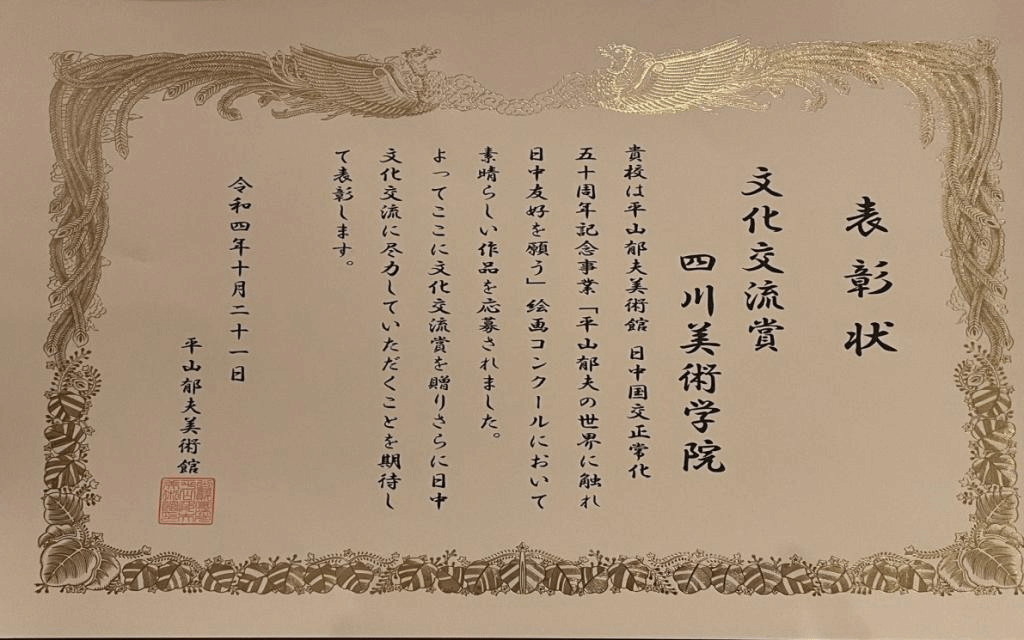 表彰状
文化交流賞
四川美術学院
貴校は平山郁夫美術館 日中国交正常化
五十周年記念事業「平山郁夫の世界に触れ
日中友好を願う」絵画コンクールにおいて
素晴らしい作品を応募されました。
よってここに文化交流賞を贈りさらに日中
文化交流に尽力していただくことを期待し
て表彰します。
令和四年十月二十一日
平山郁夫美術館